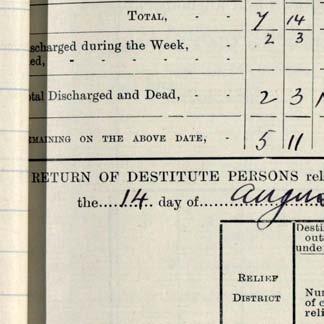 TOTAL, - - 7 14
scharged during the Week, - 2 3
ed, - - - - -
tal Discharged and Dead, - 2 3
EMAINING ON THE ABOVE DATE, - 5 11
RETURN OF DESTITUTE PERSONS rel
the 14 day of Augus
Desti
out
unde
RELIEF
DISTRICT
Num
of c
reli